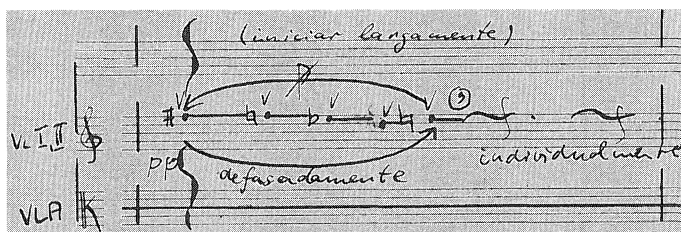 (iniciar largamente)
VL I, II
individualmente
pp
defasadamente
VLA